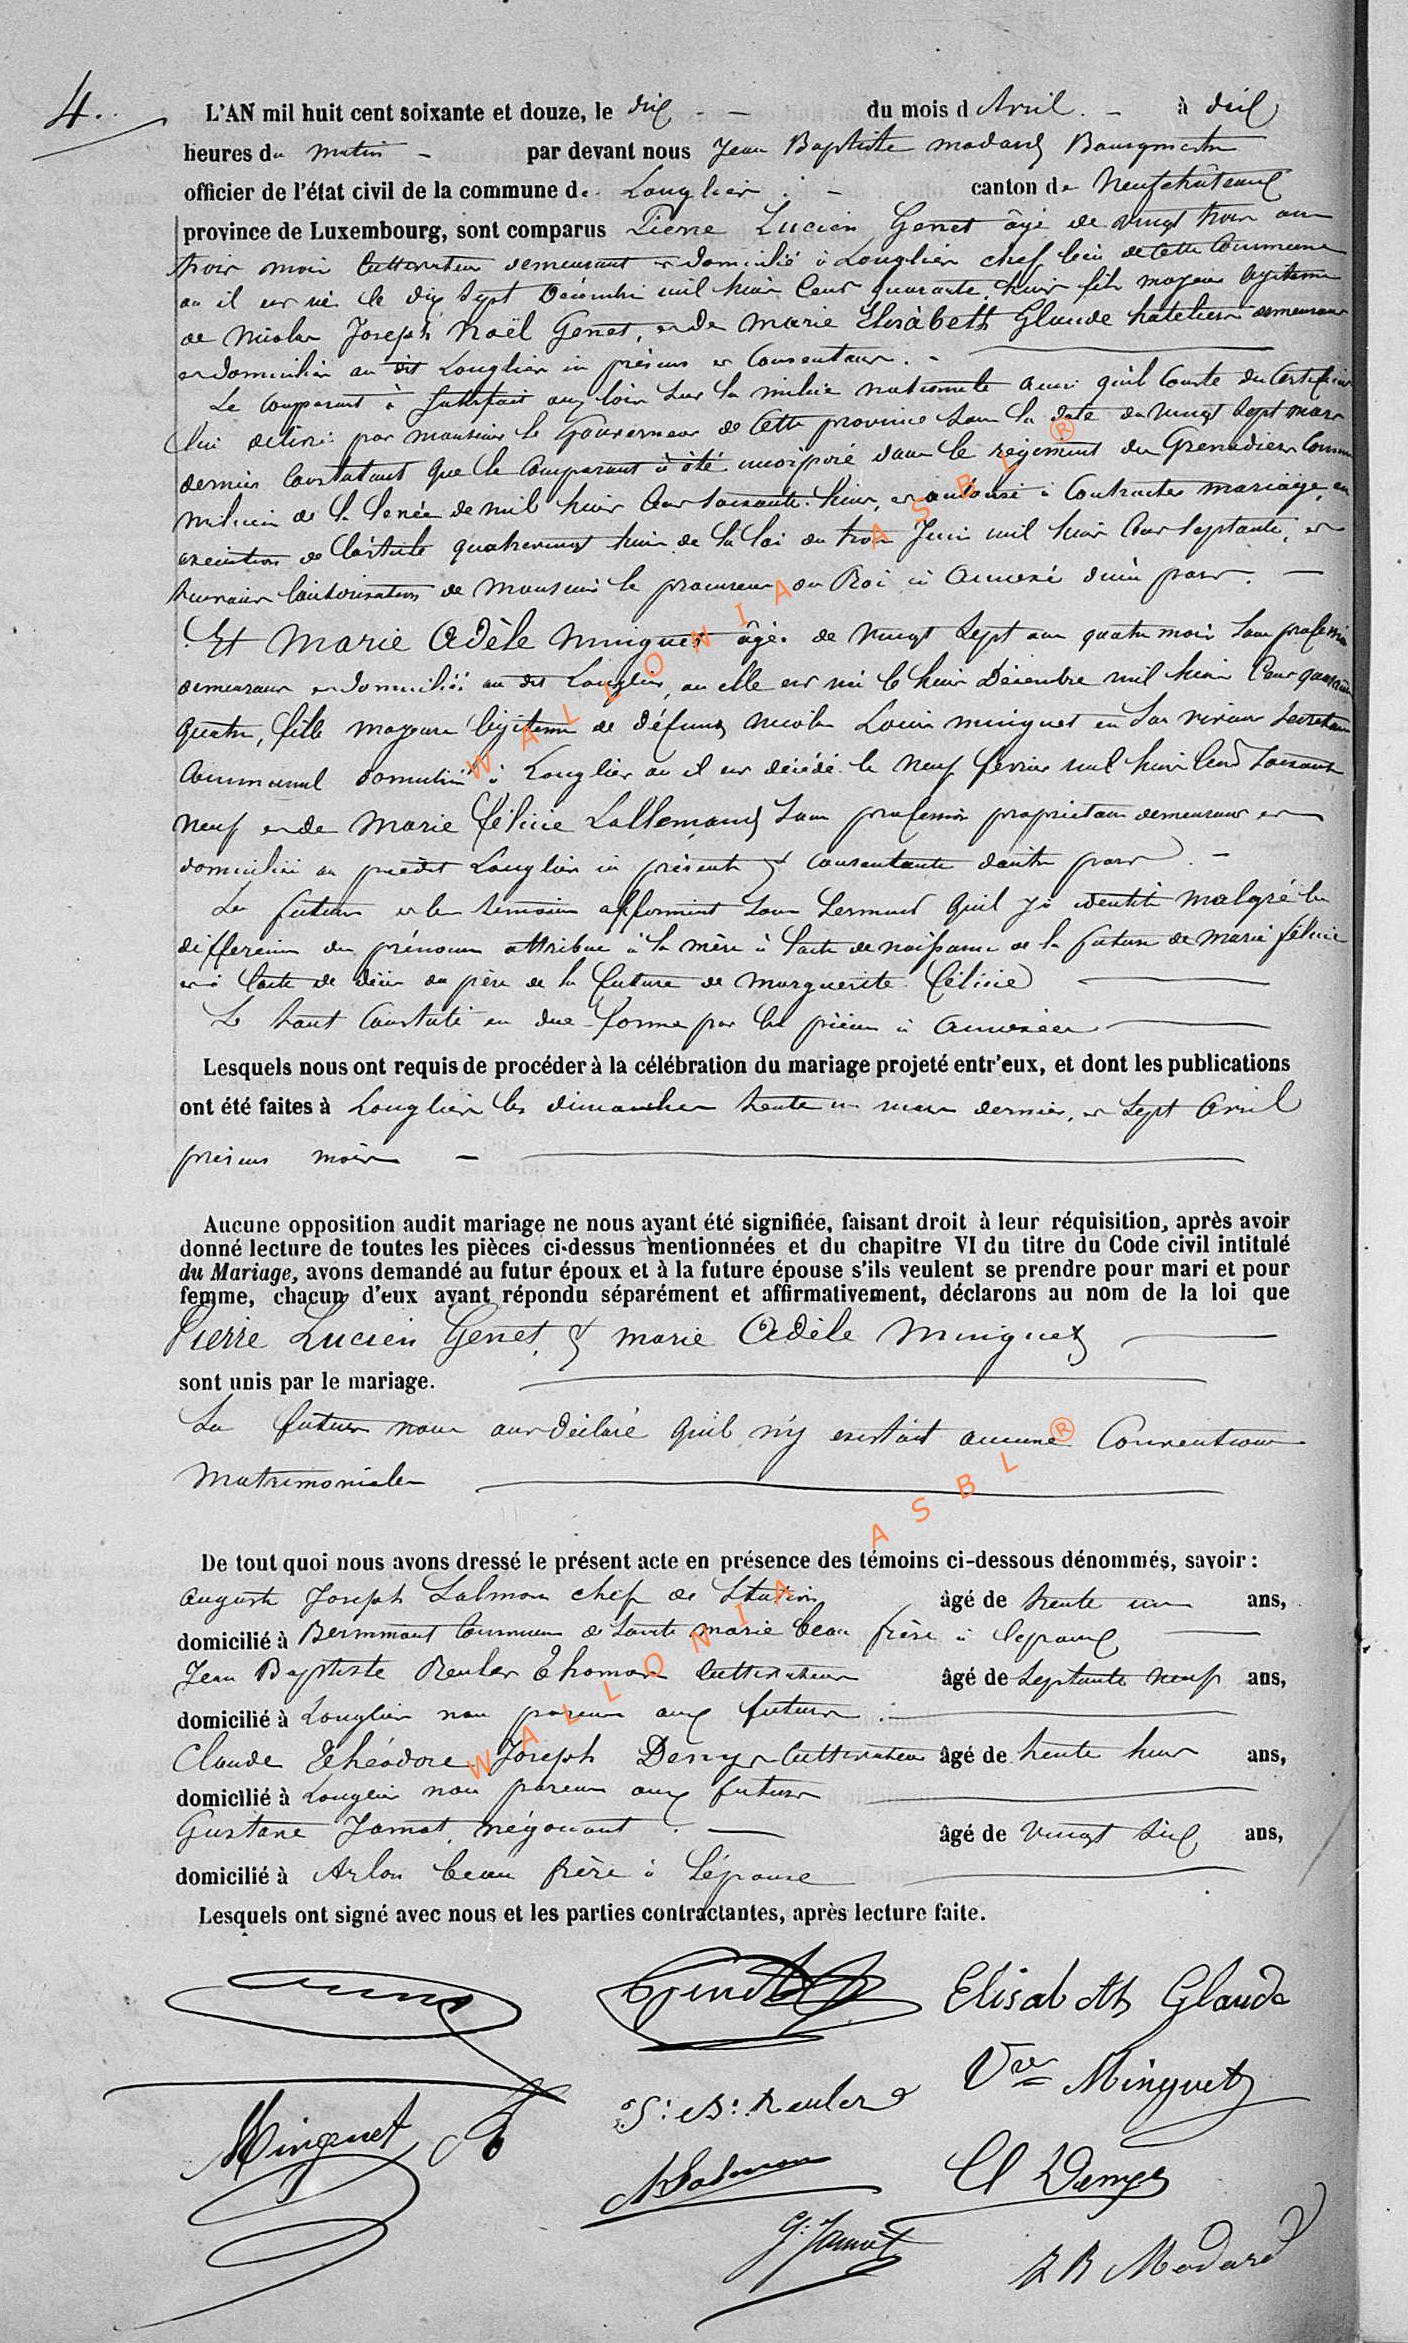 4.
L'AN mil huit cent soixante et douze, le dix du mois d Avril à dix
heures du matin par devant nous Jean Baptiste Modard Bourgmestre
officier de l'état civil de la commune de Longlier canton de Neufchâteau
province de Luxembourg, sont comparus Pierre Lucien Genet âgé de vingt trois ans
trois mois Cultivateur demeurant et domicilié à Longlier chef lieu de Cette Commune
ou il est né le dix Sept Décembre mil huit Cent quarante huit fils majeur légitime
de Nicolas Joseph Noël Genet, et de Marie Elisabeth Glaude demeurant
et domiciliés au dit Longlier ici présens et Consentans.
Le Comparant à Satisfait aux loix sur la milice nationale ainsi qu'il Conste du Certificat
lui délivré par monsieur le Gouverneur de Cette province sous la date du vingt Sept mars
dernier Constatant que le Comparant à été incorporé dans le régiment des Grenadiers Comme
milicien de la levée de mil huit Cent soixante huit, et autorisé à Contracter mariage, en
exécution de l'article quatrevingt huit de la loi du trois Juin mil huit Cent Septante, et
suivant l'autorisation de Monsieur le procureur du Roi ci Annexé d'une part.
Et Marie Adèle Minguet âgée de Vingt Sept ans quatre mois sans profession
demeurant et domiciliée au dit Longlier, ou elle est née le huit Décembre mil huit Cent quarante
quatre, fille majeure légitime de défunt Nicolas Louis Minguet en son vivant Secrétaire
Communal domicilié à Longlier ou il est décédé le Neuf février mil huit Cent Soixante
Neuf et de Marie Félicie Lallemand sans profession propriétaire demeurant et
domiciliée au prédit Longlier ici présente & Consentante d'autre part.
Les futurs et les témoins affirment sous Serment qu'il y a identité malgré la
différence des prénoms attribués à la mère à l'acte de naissance de la future de Marie félicie
et à l'acte de décès du père de la future de Marguerite Félicie
Le tout Constaté en due forme par les pièces ci Annexées
Lesquels nous ont requis de procéder à la célébration du mariage projeté entr'eux, et dont les publications
ont été faites à Longlier les dimanches trente un mars dernier, et Sept Avril
présens mois
Aucune opposition audit mariage ne nous ayant été signifiée, faisant droit à leur réquisition, après avoir
donné lecture de toutes les pièces ci-dessus mentionnées et du chapitre VI du titre du Code civil intitulé
du Mariage, avons demandé au futur époux et à la future épouse s'ils veulent se prendre pour mari et pour
femme, chacun d'eux ayant répondu séparément et affirmativement, déclarons au nom de la loi que
Pierre Lucien Genet, & Marie Adèle Minguet
sont unis par le mariage.
Les futurs nous ont déclaré qu'il n'y existait aucune Conventions
Matrimoniales
De tout quoi nous avons dressé le présent acte en présence des témoins ci-dessous dénommés, savoir :
Auguste Joseph Salmon chef de Station âgé de trente un ans,
domicilié à Bernimont Commune de Sainte Marie beau frère à l'épouse
Jean Baptiste Reuler Thomas Cultivateur âgé de Septante neuf ans,
domicilié à Longlier non parent aux futurs
Claude Théodore Joseph Denys Cultivateur âgé de trente huit ans,
domicilié à Longlier non parent aux futurs
Gustave Jamot, négociant âgé de vingt six ans,
domicilié à Arlon beau frère à l'épouse
Lesquels ont signé avec nous et les parties contractantes, après lecture faite.
Elisabeth Glaude
Vve Minguet
Minguet
J: B: Reuler
A Salmon
Cl Denys
G: Jamot
J B Modard
WALLONIA ASBL ®
WALLONIA ASBL ®